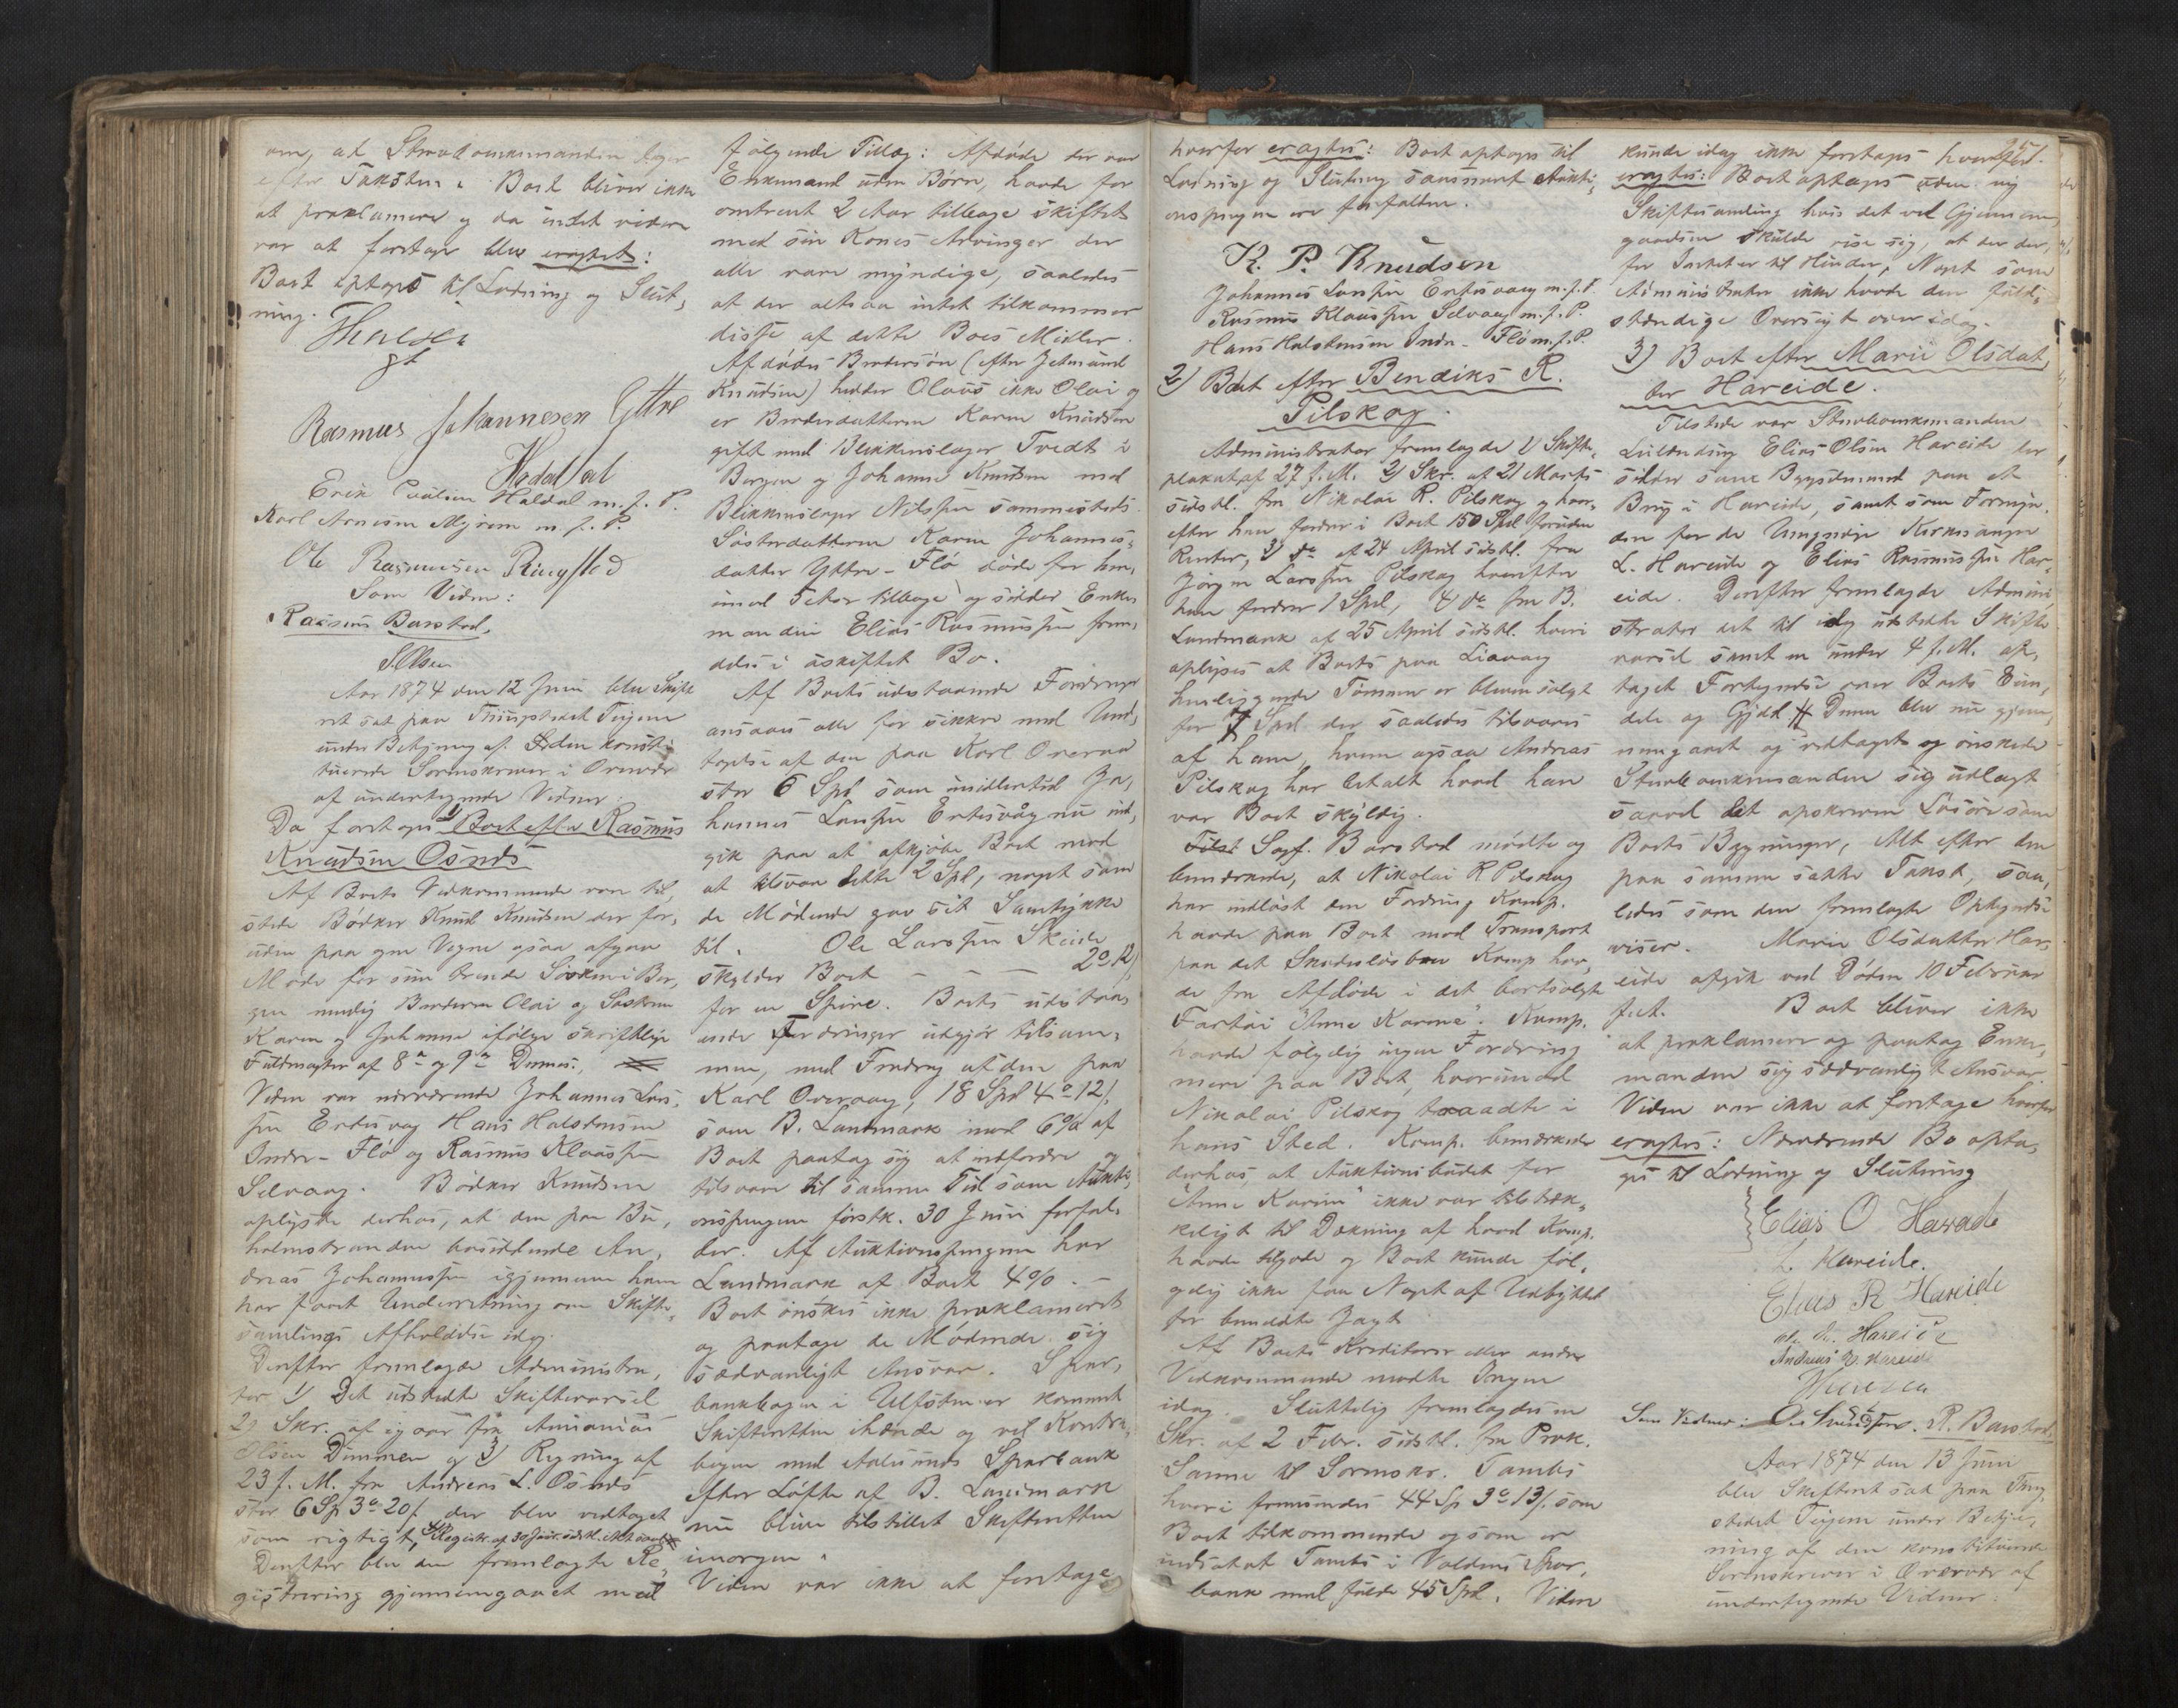 om, at Stervboenkemanden tager
efter Taksten. Boet bliver ikke
at proklamere og da intet videre
var at foretage blev eragtet:
Boet optages til Lodning og Slut,
ning.
Rasmus Johannesen Yttre
Hadal
Erik Hadal m. f. P.
Karl Arnesen Myren m. f. P.
Ole Rasmussen Ringstad
Som Vidne:
Rasmus Barstad,
Aar 1874 den 12 Juni blev Skifte
ret sat paa Thingstedet Teigene
under Betjening af den konsti
tuerede Sorenskriver i
af undertegnede Vidner:
Da foretoges 1) Boet efter Rasmus
Knudsen Osnes
Af Boets Vedkommende vare til,
stede Bødker Knud Knudsen der for,
uden paa egne Vegne ogsaa afgav
Møde for sine trende Søskende i Ber,
gen nemlig Broderen Olai og Søstrene
Karen og Johanne ifølge skriftlige
Fuldmagter af 8de og 9de Dennes.
Viden var nærværende Johannes Lars,
sen Ertesvag Hans Halstensen
Indre-Flø og Rasmus Klaassen
Selvaag. Bødker Knudsen
oplyste derhos, at den paa Bu,
holmstranden bosiddende An,
dreas Johannessen igjennem ham
har faaet Underretning om Skifte,
samlings Afholdelse idag.
Derefter fremlagde Administra,
tor 1) Det udstedte Skiftevarsel
2) Skr. af igaar fra Ananias
Olsen Dimmen og 3) Regning af
23 f. M. fra Andreas L. Osnes
stor 6 Sp 3 o 20 s. der blev vedtaget
som rigtigt, 4) Registr. af 30 Janr. sidstl.
Derefter blev den fremlagte Re,
gistrering gjennemgaaet med
følgende Tillæg: Afdøde der var
Enkemand uden Børn, havde for
omtrent 2 Aar tilbage skiftet
med sin Kones Arvinger der
alle vare myndige, saaledes
at der altsaa intet tilkommer
disse af dette Boes Midler.
Afdødes Brodersøn (efter Jetmund
Knudsen) hedder Olaus ikke Olai og
er Broderdatteren Karen Knudsen
gift med Blikkenslager Tvedt i
Bergen og Johanne Knudsen med
Blikkenslager Nilssen sammesteds.
Søsterdatteren Karen Johannes,
datter Yttre-Flø døde for hen,
imod 5 Aar tilbage og sidder Enke
manden Elias Rasmussen frem,
deles i uskiftet Bo.
Af Boets udestaaende Fordringer
ansaaes alle for sikkre med Und,
tagelse af den paa Karl Overaa
stor 6 Spd som imidlertid Jo,
hannes Larssen Ertesvåg nu ind,
gik paa at afkjøbe Boet mod
at tilsvare dette 2 Spd, noget som
de Mødende gav sit Samtykke
til. Ole Larssen Skeide
skylder Boet - - - 2 o 12 s
for en Spire. Boets udestaa,
ende Fordringer udgjør tilsam,
men, med Fradrag af den paa
Karl Overaag, 18 Spd 4 o 12 s.
som B. Landmark imod 6% af
Boet paatog sig at indfordre og
tilsvare til samme Tid som Aukti,
onspengene førstk. 30 Juni forfal,
der. Af Auktionspengene har
Landmark af Boet 4%. -
Boet ønskes ikke proklameret
og paatage de Mødende sig
sædvanligt Ansvar. Spar,
bankbogen i Ulfsten er kommet
Skifteretten ihænde og vil Kontra,
bogen med Aalesunds Sparbank
efter Løfte af B. Landmark
nu blive tilstillet Skifteretten
imorgen.
Viden var ikke at foretage
hvorfor eragtes: Boet optages til
Lodning og Slutning saasnart Aukti,
onspengene ere forfaldne.
K. P. Knudsen
Johannes Larssen Ertesvaag m. f. P.
Rasmus Klaassen Selvaag m. f. P.
Hans Halstensen Indre-Flø m. f. P.
2) Boet efter Bendiks R.
Pilskog.
Administrator fremlagde 1) Skifte,
plakat af 27 f. M. 2) Skr. af 21 Marts
sidstl. fra Nikolai R. Pilskog og hvor,
efter han fordrer i Boet 150 Spd foruden
Renter, 3) do af 24 April sidstl. fra
Jørgen Larssen Pilskog hvorefter
han fordrer 1 Spd, 4 do fra B.
Landmark af 25 April sidstl. hvori
oplyses at Boets paa Liavaag
henliggende Tømmer er bleven solgt
for 7 Spd der saaledes tilsvares
af ham, hvem ogsaa Andreas
Pilskog har betalt hvad han
var Boet skyldig.
Sagf. Barstad mødte og
bemærkede, at Nikolai R Pilskog
har indløst den Fordring Komp.
havde paa Boet mod Transport
paa det Skadesløsbrev Komp hav,
de fra Afdøde i det bortsolgte
Fartøi "Anne Karine". Komp.
havde følgelig ingen Fordring
mere paa Boet, hvorimod
Nikolai Pilskog traadte i
hans Sted. Komp. bemærkede
derhos, at Auktionsbudet for
"Anne Karine" ikke var tilstræk,
keligt til Dækning af hvad Komp.
havde tilgode og Boet kunde føl,
gelig ikke faa Noget af Udbyttet
for bemeldte Jagt.
Af Boets Kreditorer eller andre
Vedkommende mødte Ingen
idag. Sluttelig fremlagdes en
Skr. af 2 Febr. sidstl. fra Prok.
Sanne til Sorenskr. Tambs
hvori fremsendes 44 Sp 3 o 13 s. som
Boet tilkommende og som er
indsat af Tambs i Voldens Spar,
bank med fulde 45 Spd. Viden
kunde idag ikke foretages hvorfor
eragtes: Boet optages uden ny
Skiftesamling hvis det ved Gjennem,
gaaelsen skulde vise sig, at der der,
for Intet er til Hinder, Noget som
Administrator ikke havde den fuld,
stændige Oversigt over idag.
3) Boet efter Marie Olsdat,
ter Hareide.
Tilstede var Stervboenkemanden
Elias Olsen Hareide der
sidder som Bygselmand paa et
Brug i Hareide, samt som Formyn,
dere for de Umyndige Kirkesanger
L. Hareide og Elias Rasmussen Har,
eide. Derefter fremlagde Admini,
strator det til idag udstedte Skifte
varsel samt en under 4 f. M. op,
taget Fortegnelse over Boets Eien,
dele og Gjæld. Denne blev nu gjen,
nemgaaet og vedtaget og ønskede
Stervboenkemanden sig udlagt
saavel det opskrevne Løsøre som
Boets Bygninger, Alt efter den
paa samme satte Takst, saa,
ledes som den fremlagte Optegnelse
viser. Marie Olsdatter Har,
eide afgik ved Døden 10 Februar
f. A. Boet bliver ikke
at proklamere og paatog Enke,
manden sig sædvanligt Ansvar.
Viden var ikke at foretage hvorfor
eragtes: Nærværende Bo opta,
ges til Lodning og Slutning
Elias O Hareide
L. Hareide.
Elias R Hareide
Ole Hareide
Andreas Hareide
Som Vidner: R. Barstad.
Aar 1874 den 13 Juni
blev Skifteret sat paa Thing,
stedet Teigene under Betje,
ning af den konstituerede
Sorenskriver i af
undertegnede Vidner: